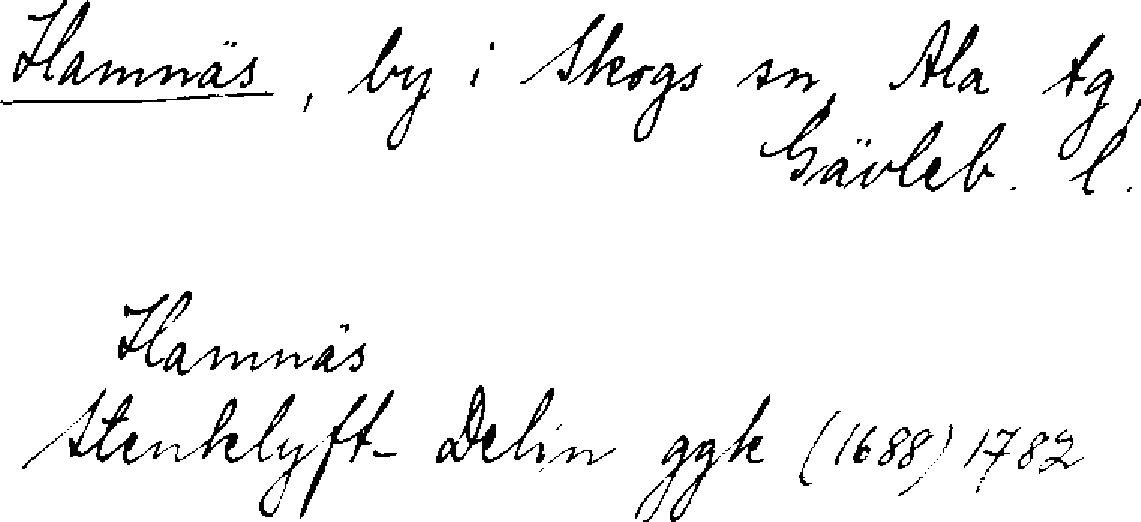 Hamnäs, by i Skogs sn, Ala tg,
Gävleb. l.
Hamnäs
Stenklyft- Delin ggk (1688) 1782